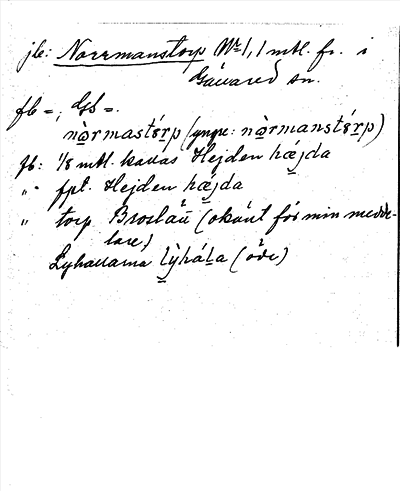 jb: Norrmanstorp No 1, 1 mtl. fr. i
Gåvared sn.
fb =; Gb =.
nòrmastórp (yngre: nòrmanstórp)
fb: 1/8 mtl. kallas Hejden hǽjda
" fpt. Hejden hǽjda
" torp Broslätt (okänt för min medde-
lare)
Lyhallarna lỳhála (öde)